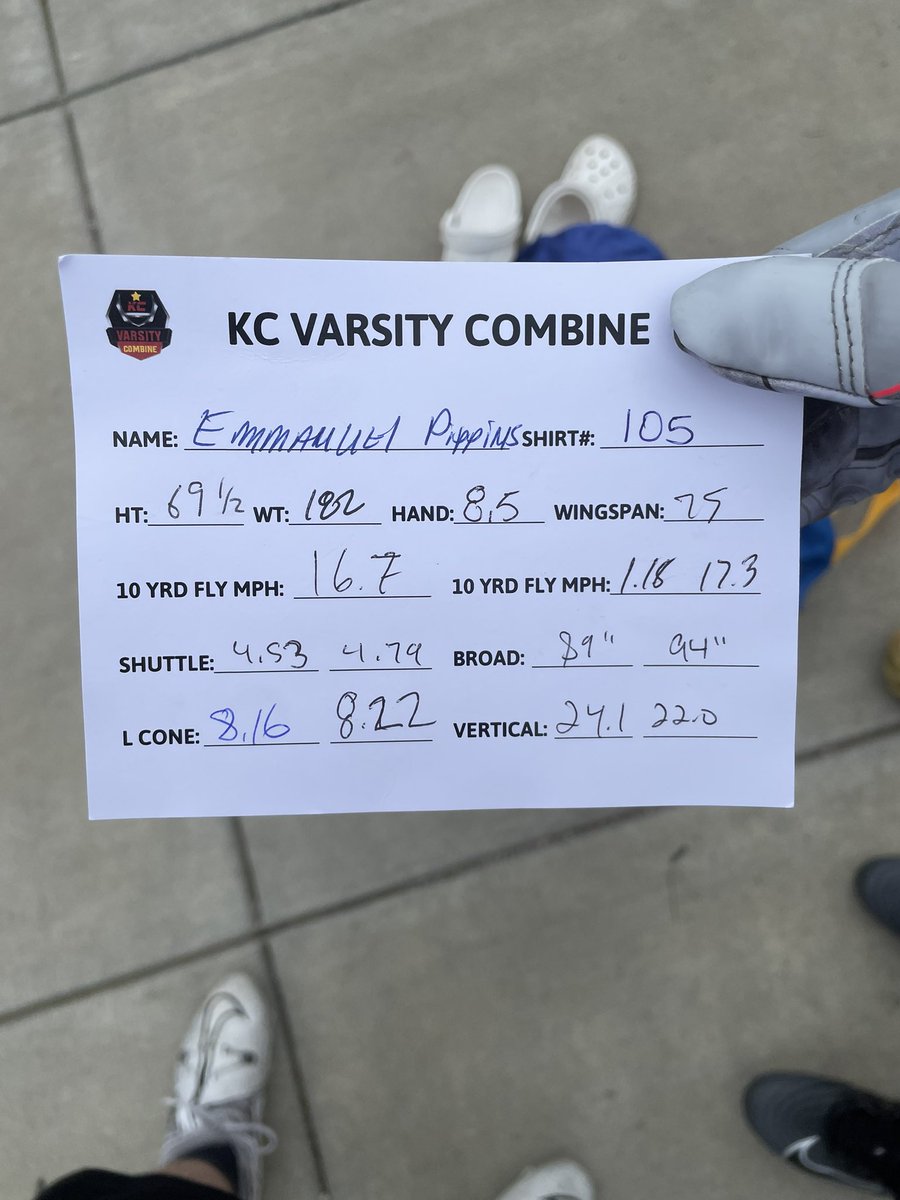 KC
VARSITY
COMBINE
KC VARSITY COMBINE
NAME: Emmanuel Pippins SHIRT#: 105
HT: 69 1/2 WT: 182 HAND: 8.5 WINGSPAN: 75
10 YRD FLY MPH: 16.7 10 YRD FLY MPH: 1.18 17.3
SHUTTLE: 4.53 4.79 BROAD: 89" 94"
L CONE: 8.16 8.22 VERTICAL: 24.1 22.0